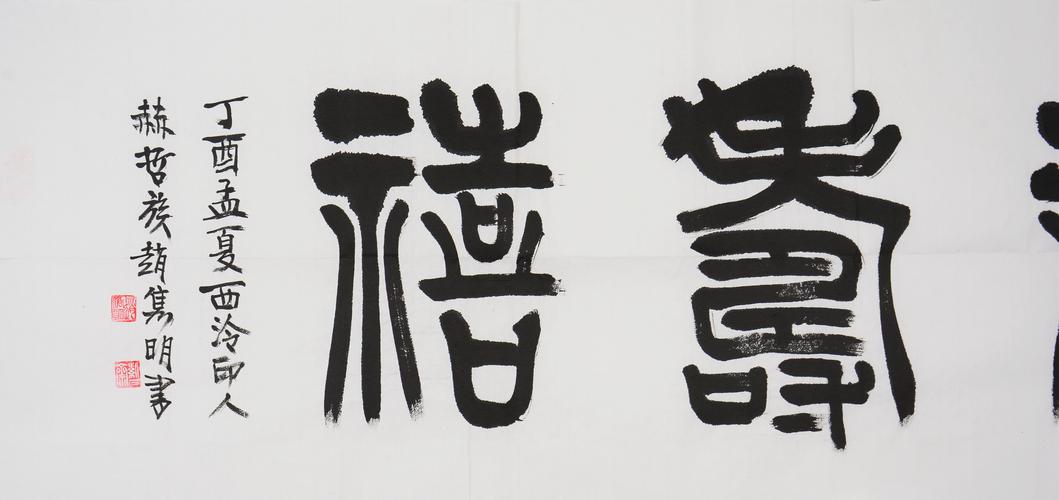 壽禧
丁酉孟夏西泠印人
赫哲族趙雋明書